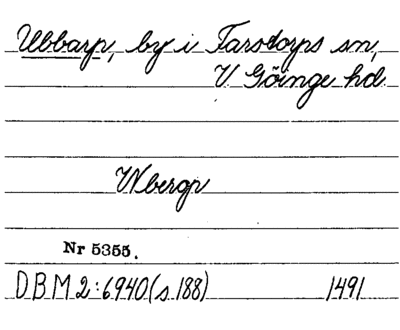 Ubbarp, by i Farstorps sn,
V Göinge hd.
Wbergp
Nr 5355.
DBM 2:6940 (s 188) 1491